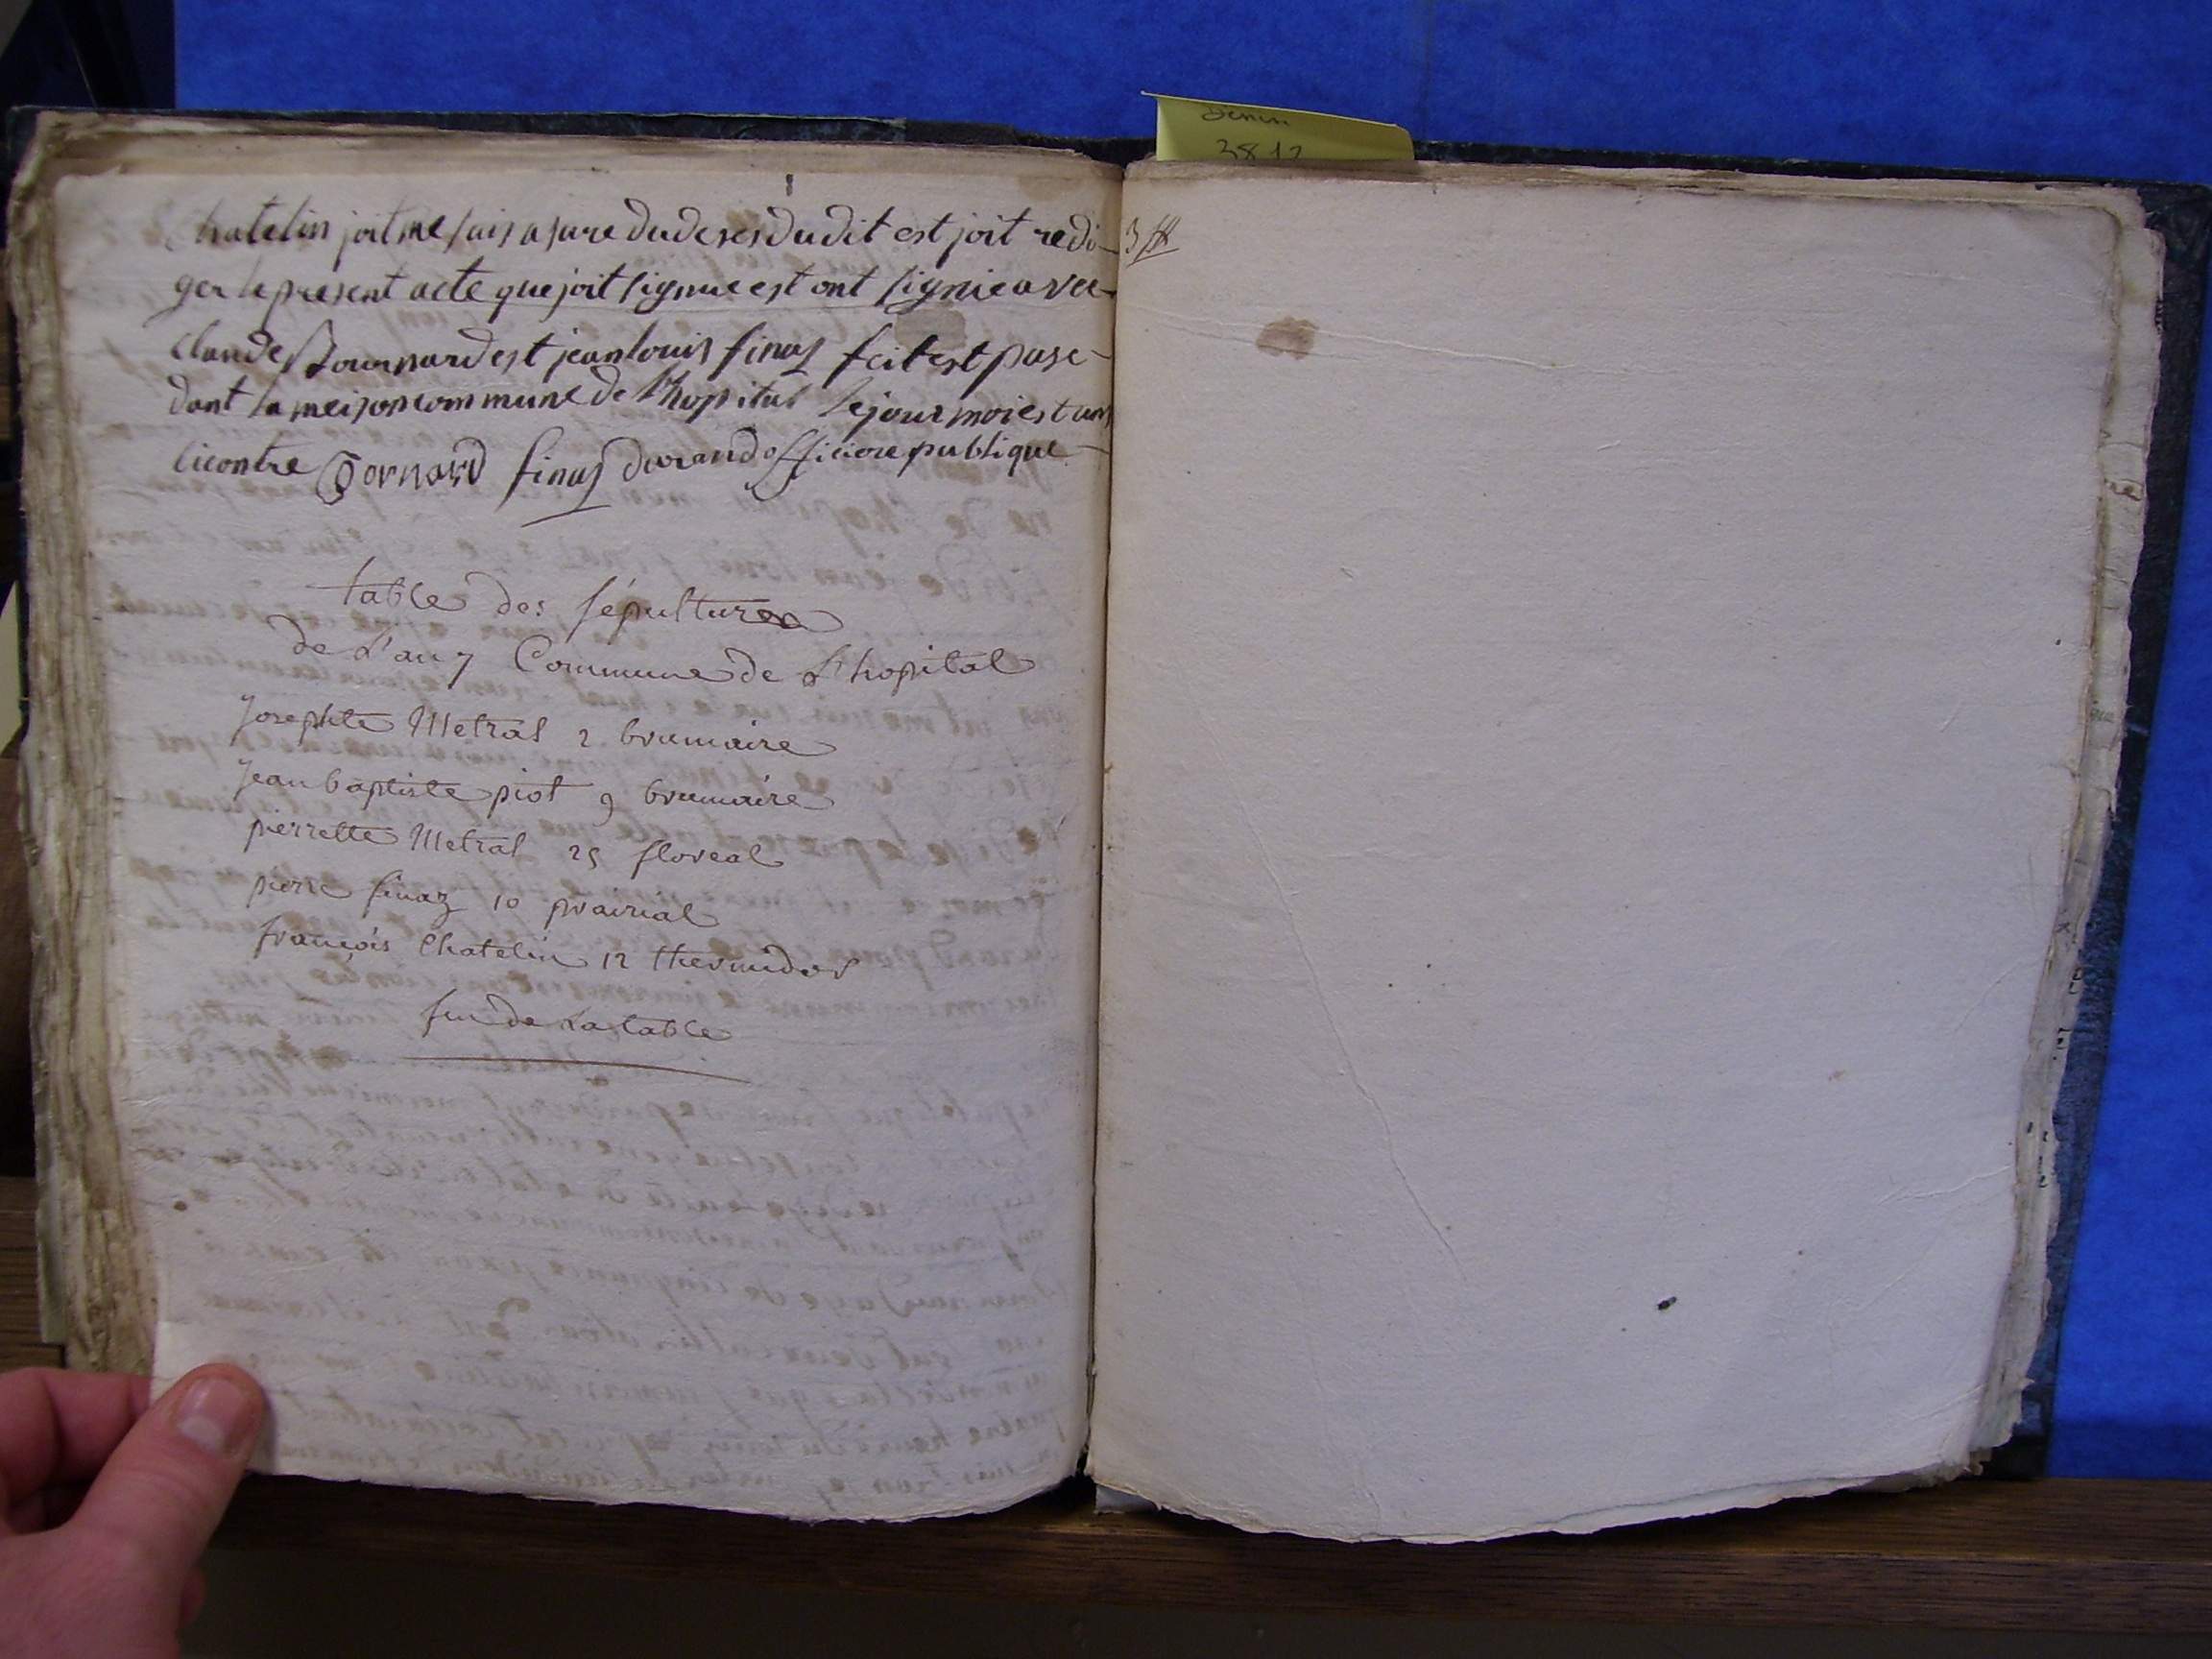 Chatelin joit me suis asure du deses dudit est joit redi-
ger le present acte que joit signue est ont signie avec
Claude Bournard est jean louis finas feit est pase
dant la meison commune de l'hopital le jour moi est an
ci contre Bornard finas durand officiere publique
table des sépultures
de L'an 7 Commune de L'hopital
Josephte Metral 2 brumaire
Jean baptiste piot 9 brumaire
pierrette Metral 25 floreal
pierre finaz 10 prairial
françois Chatelin 12 thermidor
fin de La table
3812